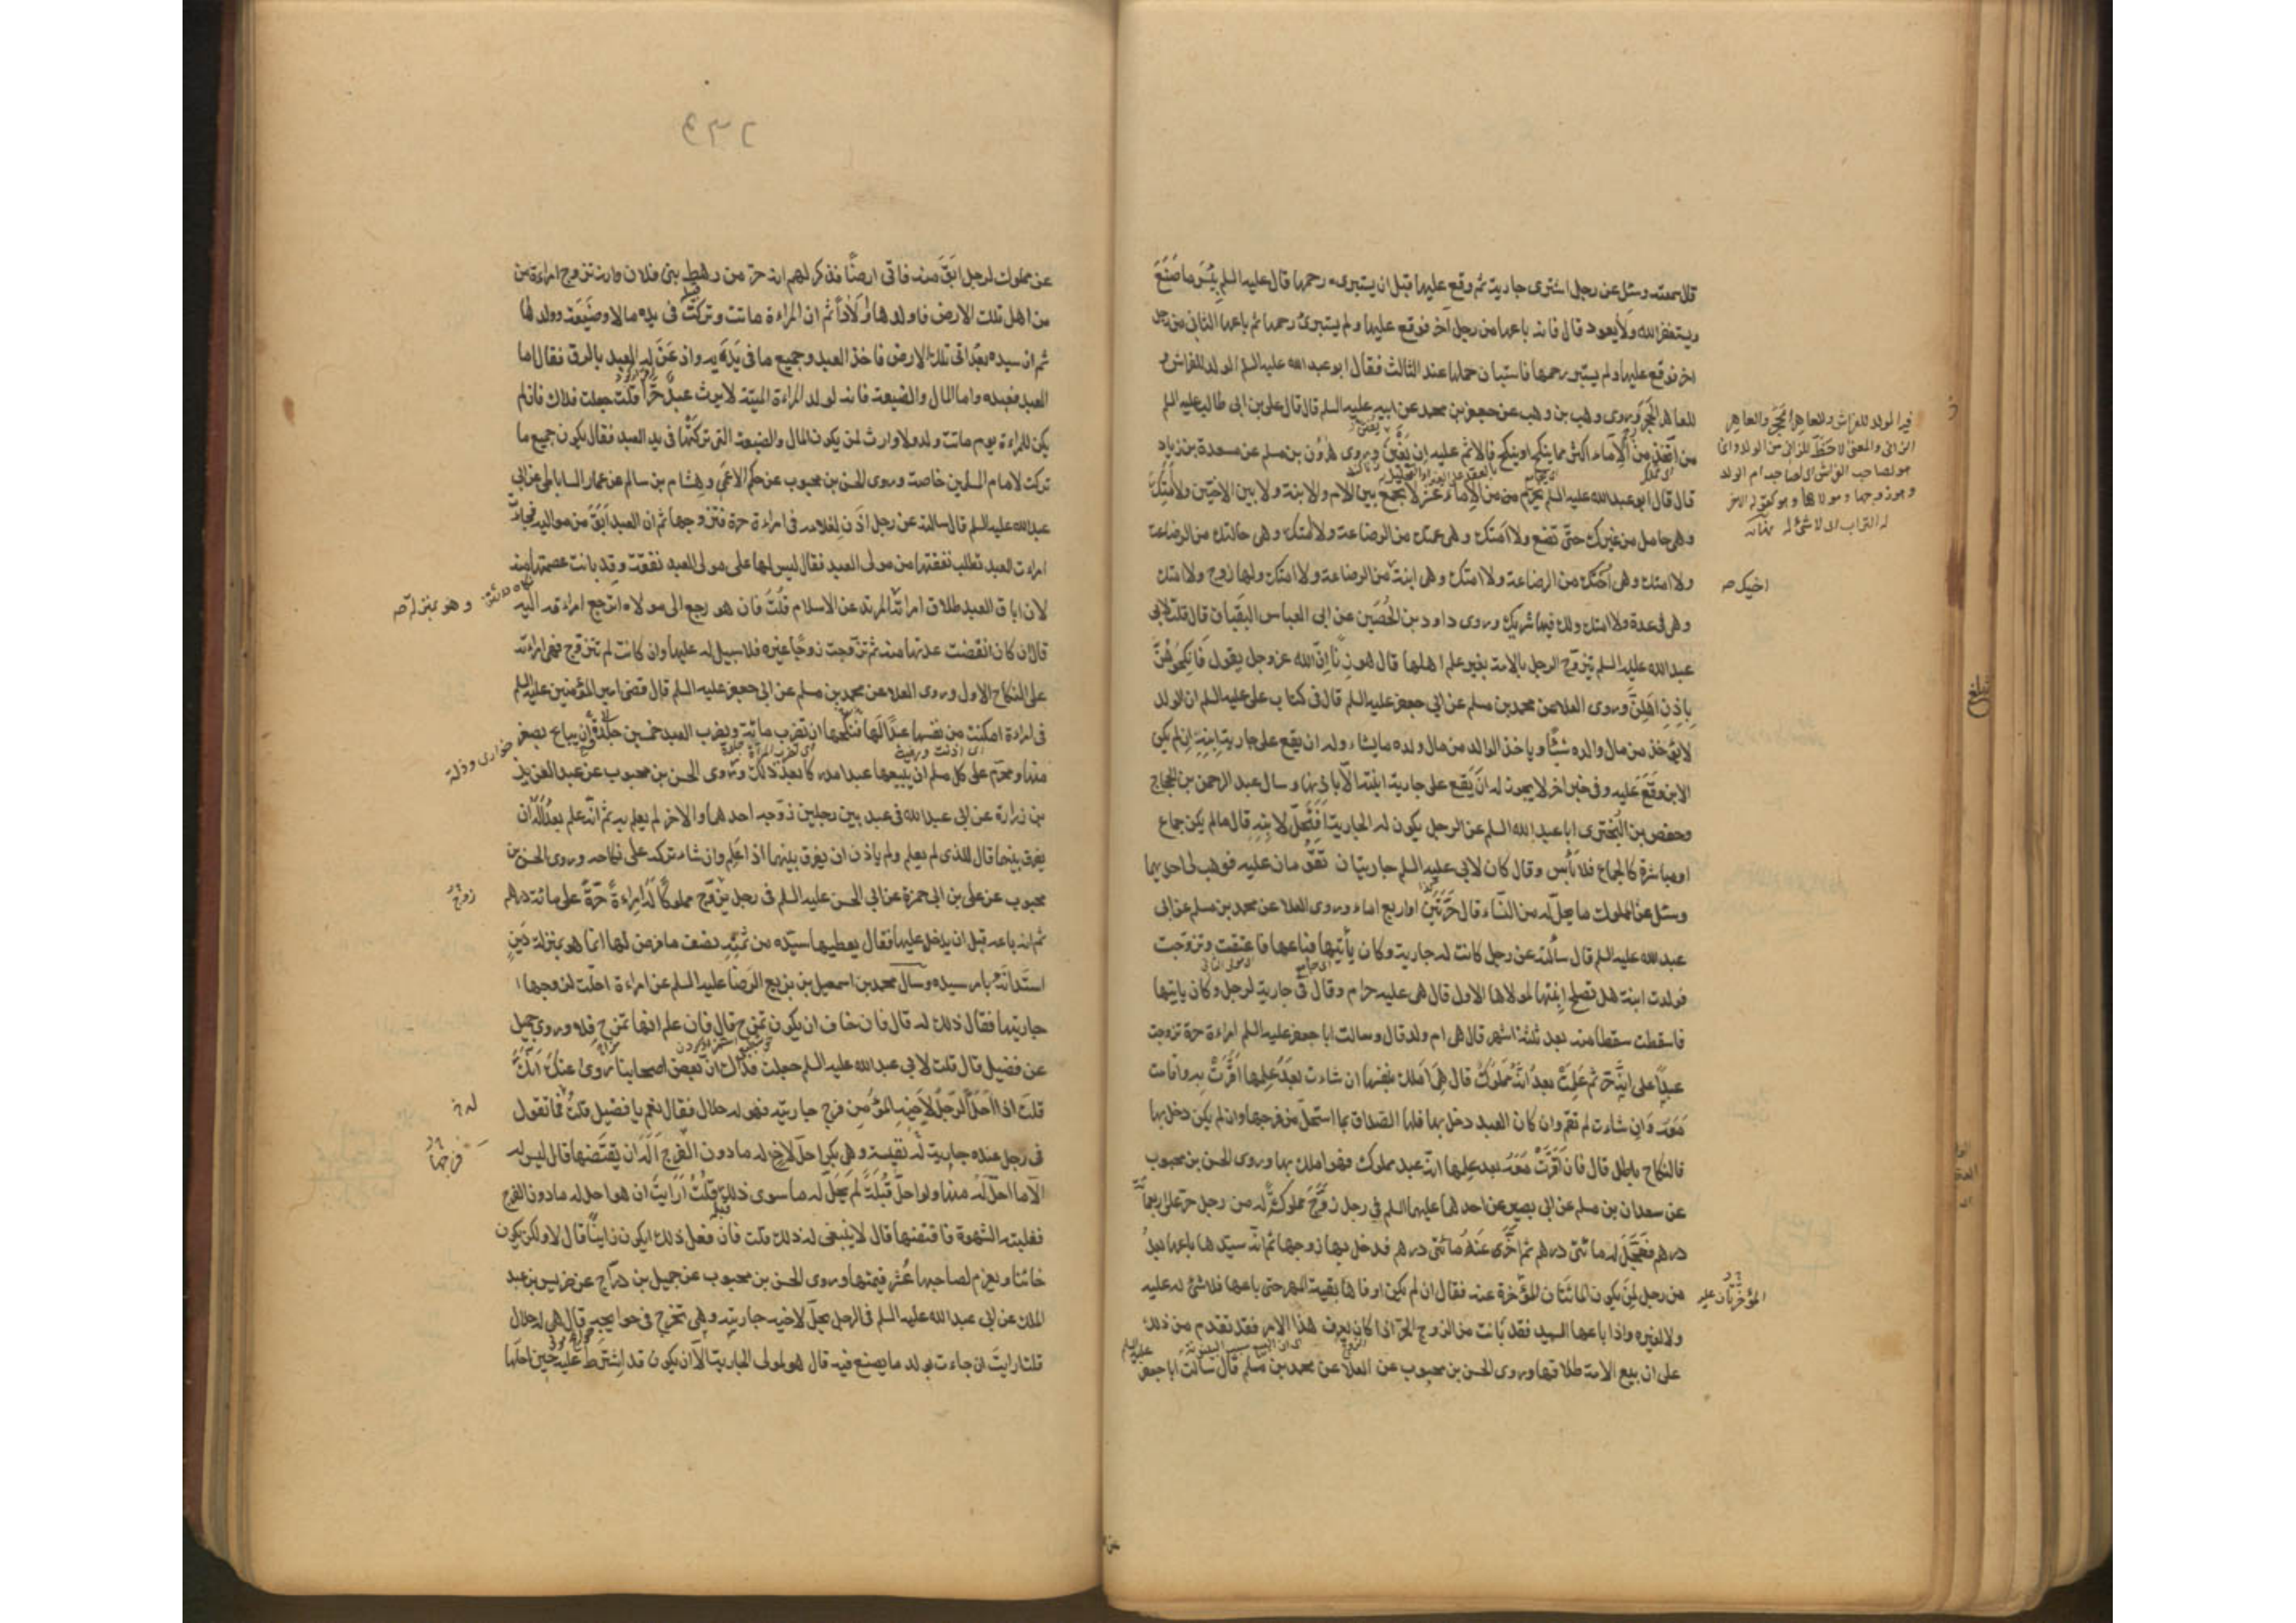 قال سمعته وسئل عن رجل اشترى جارية ثم وقع عليها قبل ان يستبرىء رحمها قال عليه السلم بِئْسَ ما صَنَعَ
ويستغفر الله ولا يعود قال فانه باعها من رجل آخر فوقع عليها ولم يستبرئ رحمها ثم باعها الثانى من رجل
اخر فوقع عليها ولم يستبر رحمها فاستبان حملها عند الثالث فقال ابو عبد الله عليه السلم الولد للفراش و
للعاهر الحجر وروى وهب بن وهب عن جعفر بن محمد عن ابيه عليه السلم قال قال على بن ابى طالب عليه السلم
من اتّخذ من الاماء اكثر مما ينكح او ينكح فالاثم عليه ان بغين وروى هرون بن مسلم عن مسعدة بن زياد
قال قال ابو عبد الله عليه السلم يحرم من الاماء عشر لا يجمع بين الام والابنة ولا بين الاختين ولا امتك
وهى حامل من غيرك حتّى تضع ولا امتك وهى عمتك من الرضاعة ولا امتك وهى خالتك من الرضاعة
ولا امتك وهى اختك من الرضاعة ولا امتك وهى ابنة من الرضاعة ولا امتك ولها زوج ولا امتك
وهى فى عدة ولا امتك ولك فيها شريك وروى داود بن الحُصَين عن ابى العباس البقباق قال قلت لابى
عبد الله عليه السلم يتزوّج الرجل بالامة بغير علم اهلها قال هو زنًا اِنّ الله عز وجل يقول فَانكِحُوهُنَّ
بِاِذنِ اَهلِهنَّ وروى العلا عن محمد بن مسلم عن ابى جعفر عليه السلم قال فى كتاب على عليه السلم ان الولد
لا ياخذ من مال والده شيئًا وياخذ الوالد من مال ولده ما يشاء وله ان يقع على جارية ابنه ان لم يكن
الابن وَقَعَ عليه وفى خبر اخر لا يجوز له اَن يَقع على جارية ابنته الّا باذنها وسال عبد الرحمن بن الحجاج
وحفص بن البَختَرى ابا عبد الله السلم عن الرجل يكون له الجارية اَفَتَحِلّ لابنه قال ما لم يكن جماع
او مباشرة كالجماع فلا بَأس وقال كان لابى عليه السلم جاريتان تقومان عليه فوهب لى احديهما
وسئل عن المملوك ما يحلّ له من النساء قال حُرّتين او اربع اماء وروى العلا عن محمد بن مسلم عن ابى
عبد الله عليه السلم قال سألته عن رجل كانت له جارية وكان يأتيها فباعها فاعتقت وتزوّجت
فولدت ابنة هل تصلح اِبنتها لمولاها الاول قال هى عليه حرام وقال فى جارية لرجل وكان ياتيها
فاسقطت سقطا منه بعد ثلثة اشهر قال هى ام ولد قال وسالت ابا جعفر عليه السلم امراءة حرة تزوجت
عبدًا على انّه حرّ ثم عَلِمَتْ بعدُ انّه مَملوكٌ قال هِىَ اَملك بنفسها ان شاءت بعدَ عِلمها اَقرّت به واقامت
مَعَهُ وَاِن شاءت لم تقم وان كان العبد دخل بها فلها الصّداق بما استحلّ من فرجها وان لم يكن دخل بها
فالنكاح باطل قال فان اَقَرّتْ مَعَهُ بعد عِلمها انّه عبد مملوك فهو املك بها وروى الحسن بن محبوب
عن سعدان بن مسلم عن ابى بصير عن احدهما عليهما السلم فى رجل زوّجَ مملوكةً له من رجل حرّ على اربعمأة
درهم فعَجّلَ له مائتى درهم ثم اَخّرَى عَنهُ مائتى درهم فدخل بها زوجها ثم انّه سيّدها باعها بعدُ
من رجل لِمَن يكون المائتان المؤخّرة عنه فقال ان لم يكن اوفاها بقية المهر حتى باعها فلا شئ له عليه
ولا لغيره واذا باعها السيد فقد بانت من الزوج الحرّ اذا كان يعرف هذا الامر فقد تقدم من ذلك
على ان بيع الامة طلاقها وروى الحسن بن محبوب عن العلا عن محمد بن مسلم قال سألت ابا جعفر
عليه السلم
فيه الولد للفراش وللعاهر الحَجَر والعاهر
الزانى والمعنى لا حَظَّ للزانى من الولد وانما
هو لصاحب الفراش اى لصاحب ام الولد
وهو زوجها ومولاها وهو كقوله الاخر
له التراب اى لا شئ له
اخيك صه
المؤخّرتان عليه
٢٣٩
عن مملوك لرجل ابَقَ منه فاتى ارضًا فذكر لهم انه حرّ من رهط بنى فلان وانه تزوج امراءة من
من اهل تلك الارض فاولدها اَولادًا ثم ان المراءة ماتت وتركت فى يده مالا وضَيعَة وولدها
ثم ان سيده بعدُ اتى تلك الارض فاخذ العبد وجميع ما فى يَدَيه واذعَنَ له العبد بالرق فقال اما
العبد فعبده واما المال والضيعة فانه لولد المراءة الميّتة لا يرث عبدٌ حرًّا قلت جعلت فداك فان لم
يكن للمراءة يوم ماتت ولد ولا وارث لمن يكون المال والضيعة التى تركتها فى يد العبد فقال يكون جميع ما
تركت لامام المسلمين خاصة وروى الحسن بن محبوب عن حكم الاعمى وهشام بن سالم عن عمار الساباطى عن ابى
عبد الله عليه السلم قال سالته عن رجل اذن لغلامه فى امراءة حرة فتزوجها ثم ان العبد اَبَقَ من مواليه فجاءت
امراءت العبد تطلب نفقتها من مولى العبد فقال ليس لها على مولى العبد نفقة وقد بانت عصمتها منه
لان اباق العبد طلاق امرائته المرتد عن الاسلام قلتُ فان هو رجع الى مولاه اترجع امراءته اليه
قال ان كان انقضت عدتها منه ثم تزوجت زوجًا غيره فلا سبيل له عليها وان كانت لم تتزوج فهى امراءته
على النكاح الاول وروى العلا عن محمد بن مسلم عن ابى جعفر عليه السلم قال قضى امير المؤمنين عليه السلم
فى امراءة امكنت من نفسها عبدًا لَها فنكحها ان تضرب مائة ويضرب العبد خمسين جلدة وان يباع بصغر
منها ومحرّم على كل مسلم ان يبيعها عبدا مدركا بعد ذلك وروى الحسن بن محبوب عن عبد العزيز
بن زرارة عن ابى عبد الله فى عبد بين رجلين زوّجه احدهما والاخر لم يعلم به ثم انّه علم بعدُ اَلَهُ ان
يفرق بينهما قال للذى لم يعلم ولم ياذن ان يفرق بينهما اذا عَلِم وان شاء تركه على نكاحه وروى الحسن بن
محبوب عن على بن ابى حمزة عن ابى الحسن عليه السلم فى رجل يزوّج مملوكًا لَهُ امراءةً حُرّةً على مائة درهم
ثم انه باعه قبل ان يدخل عليها فقال يعطيها سيّده من ثمنه نصف ما فرض لها انما هو بمنزلة دَين
استدانَهُ بامر سيده وسال محمد بن اسمعيل بن بزيع الرّضا عليه السلم عن امراءة احلّت لزوجها
جاريتها فقال ذلك له قال فان خاف ان يكون تمزح قال فان علم انها تمزح فلا وروى جميل
عن فضيل قال قلت لابى عبد الله عليه السلم جعلت فداك انّ بعض اصحابنا رَوَى عنك اَنّكَ
قلتَ اذا اَحَلّ الرجُل لاَخيه المؤمن فرج جاريته فهو له حلال فقال نعم يا فضيل قلتُ فما تقول
فى رجل عنده جارية له نفيسة وهى بكر احلّ لاخ له ما دون الفرج اَلَهُ ان يفتضّها قال ليس له
الّا ما احلّ لَهُ منها ولو احلّ قُبلَةً لم يَحِلّ له ما سوى ذلك قلتُ اَرَايتَ ان هو احل له ما دون الفرج
فغلبته الشهوة فاقتضها قال لا ينبغى له ذلك قلت فان فعل ذلك ايكون زانيًا قال لا ولكن يكون
خائنا ويغرم لصاحبها عُشر قيمتها وروى الحسن بن محبوب عن جميل بن درّاج عن ضريس بن عبد
الملك عن ابى عبد الله عليه السلم فى الرجل يحلّ لاخيه جاريته وهى تخرج فى حوايجه قال هى له حلال
قلت ارايتَ ان جاءت بولد ما يصنع فيه قال هو لمولى الجارية الّا ان يكون قد اشترط عليه حين احلّها
وهو بمنزلة صه
زوّج
له خ
فرجها